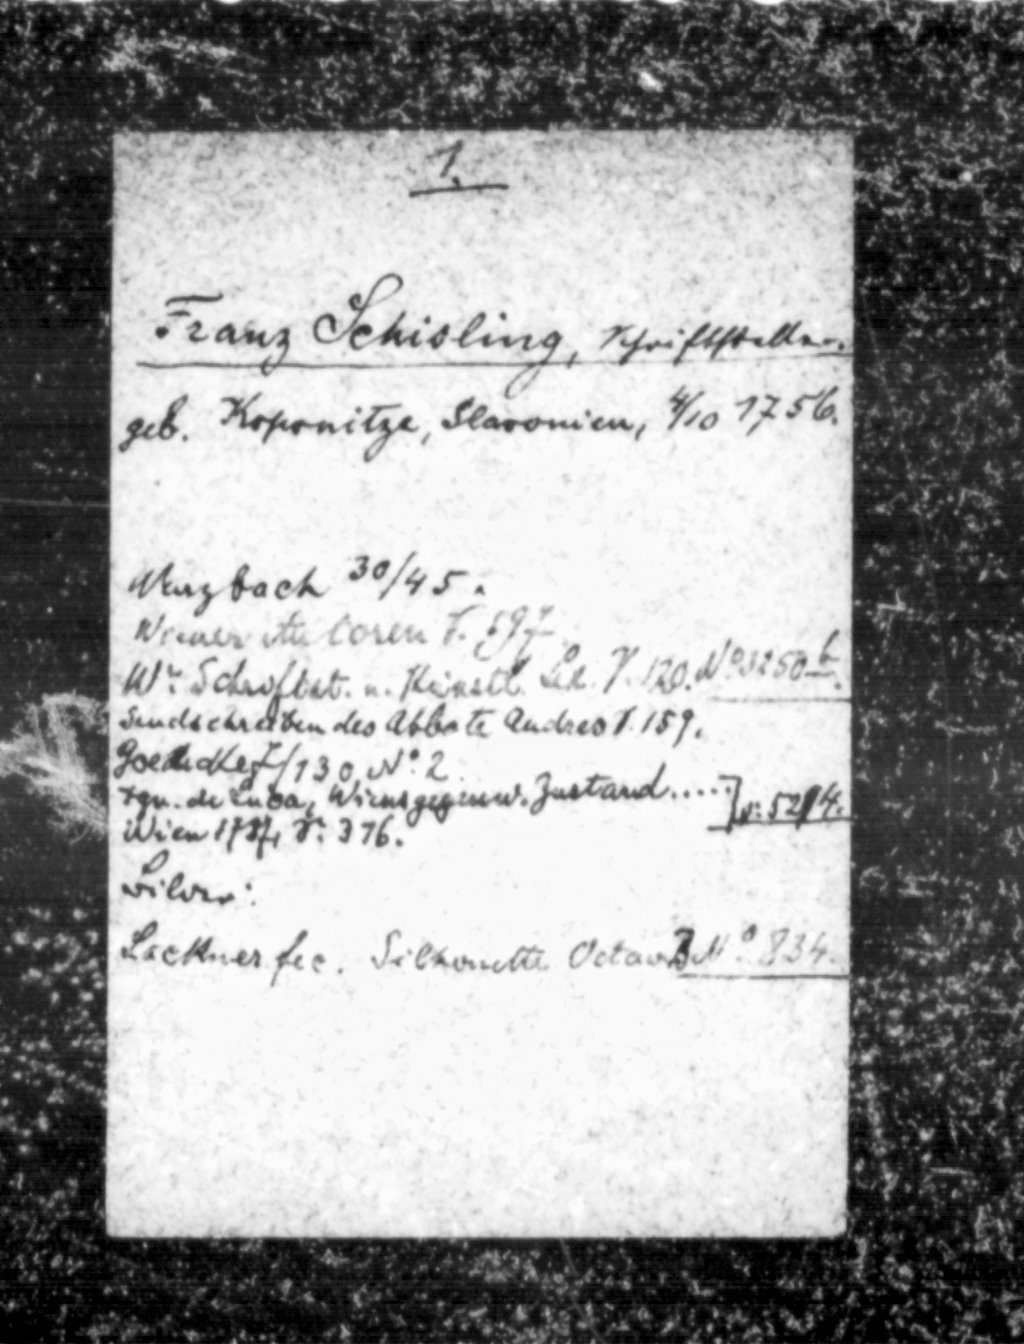 1.
Franz Schisling, Schriftsteller.
geb. Kopronitze, Slavonien, 4/10 1756.
Wurzbach 30/45.
Wiener Autoren S. 197
Wr. Schriftst. u. Künstl. Lex. S. 120. No. 3250 b.
Sendschreiben des Abbate Andres S. 159.
Goedeke I/130 No. 2
Ign. de Luca, Wiens gegenw. Zustand.....] No. 5214.
Wien 1787, S. 376.
Bilder:
Lackner fec. Silhouette Octav B No. 834.